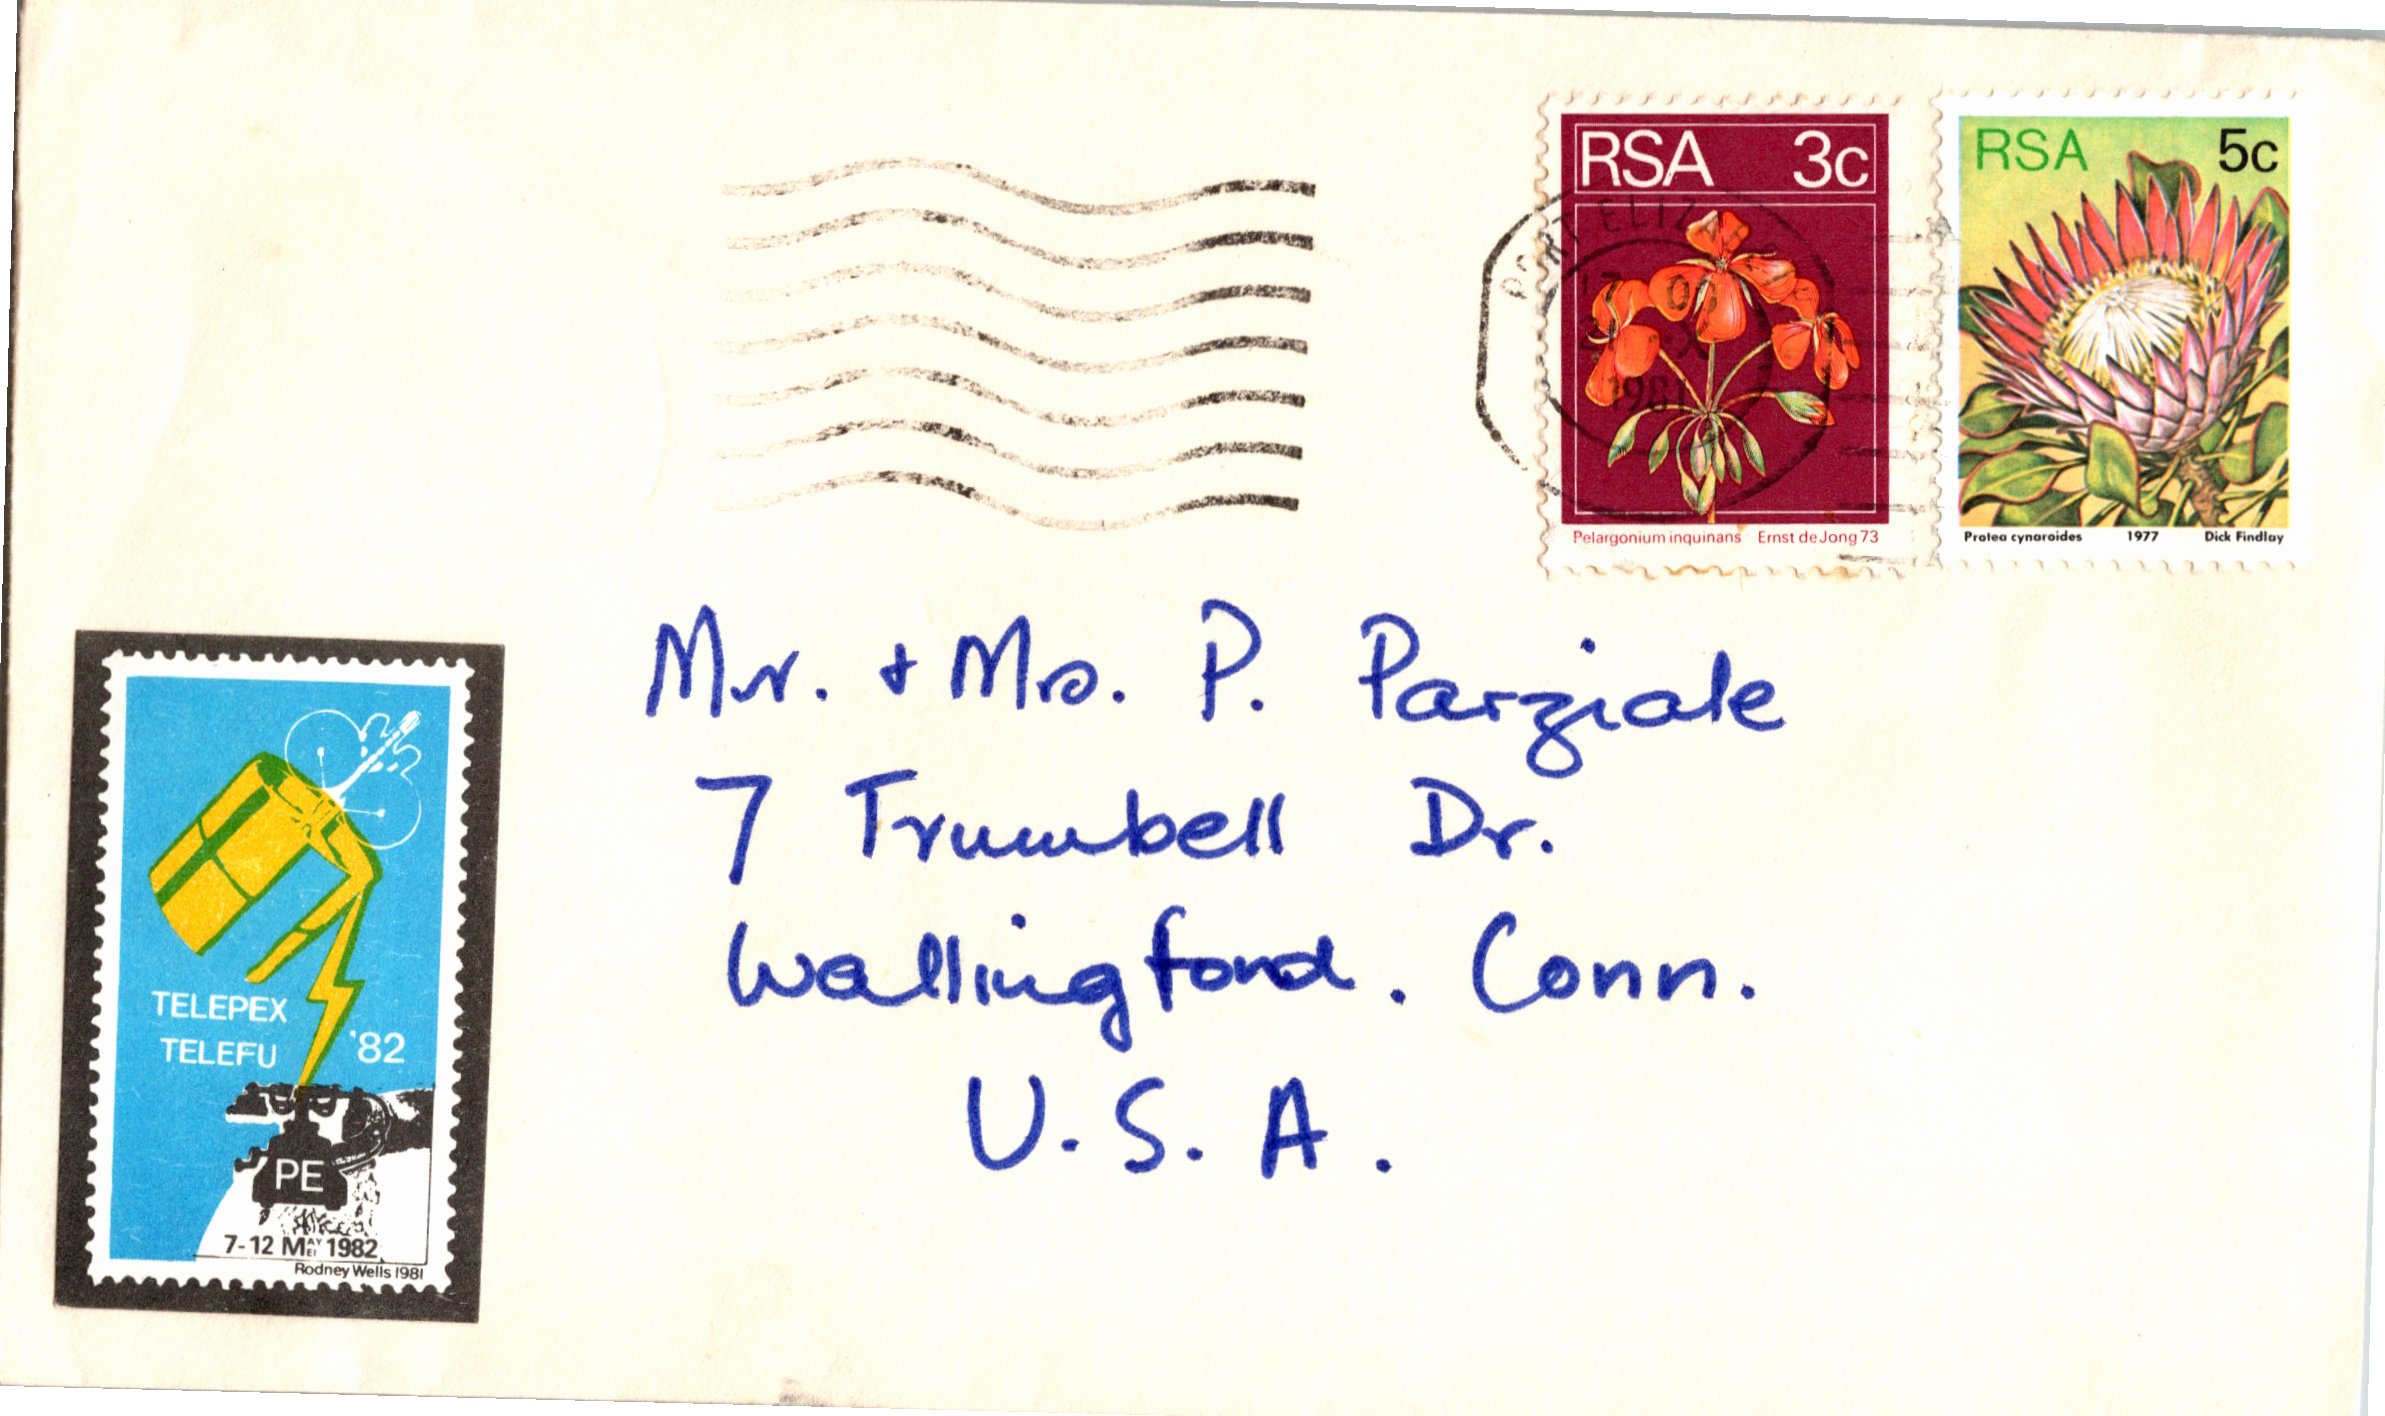 RSA 3c
PORT ELIZ
17 00
-X
1981
Pelargonium inquinans Ernst de Jong 73
RSA 5c
Protea cynaroides 1977 Dick Findlay
Mr. + Mrs. P. Parziale
7 Trumbell Dr.
Wallingford. Conn.
U.S.A.
TELEPEX
TELEFU '82
PE
7-12 MAY/EI 1982
Rodney Wells 1981